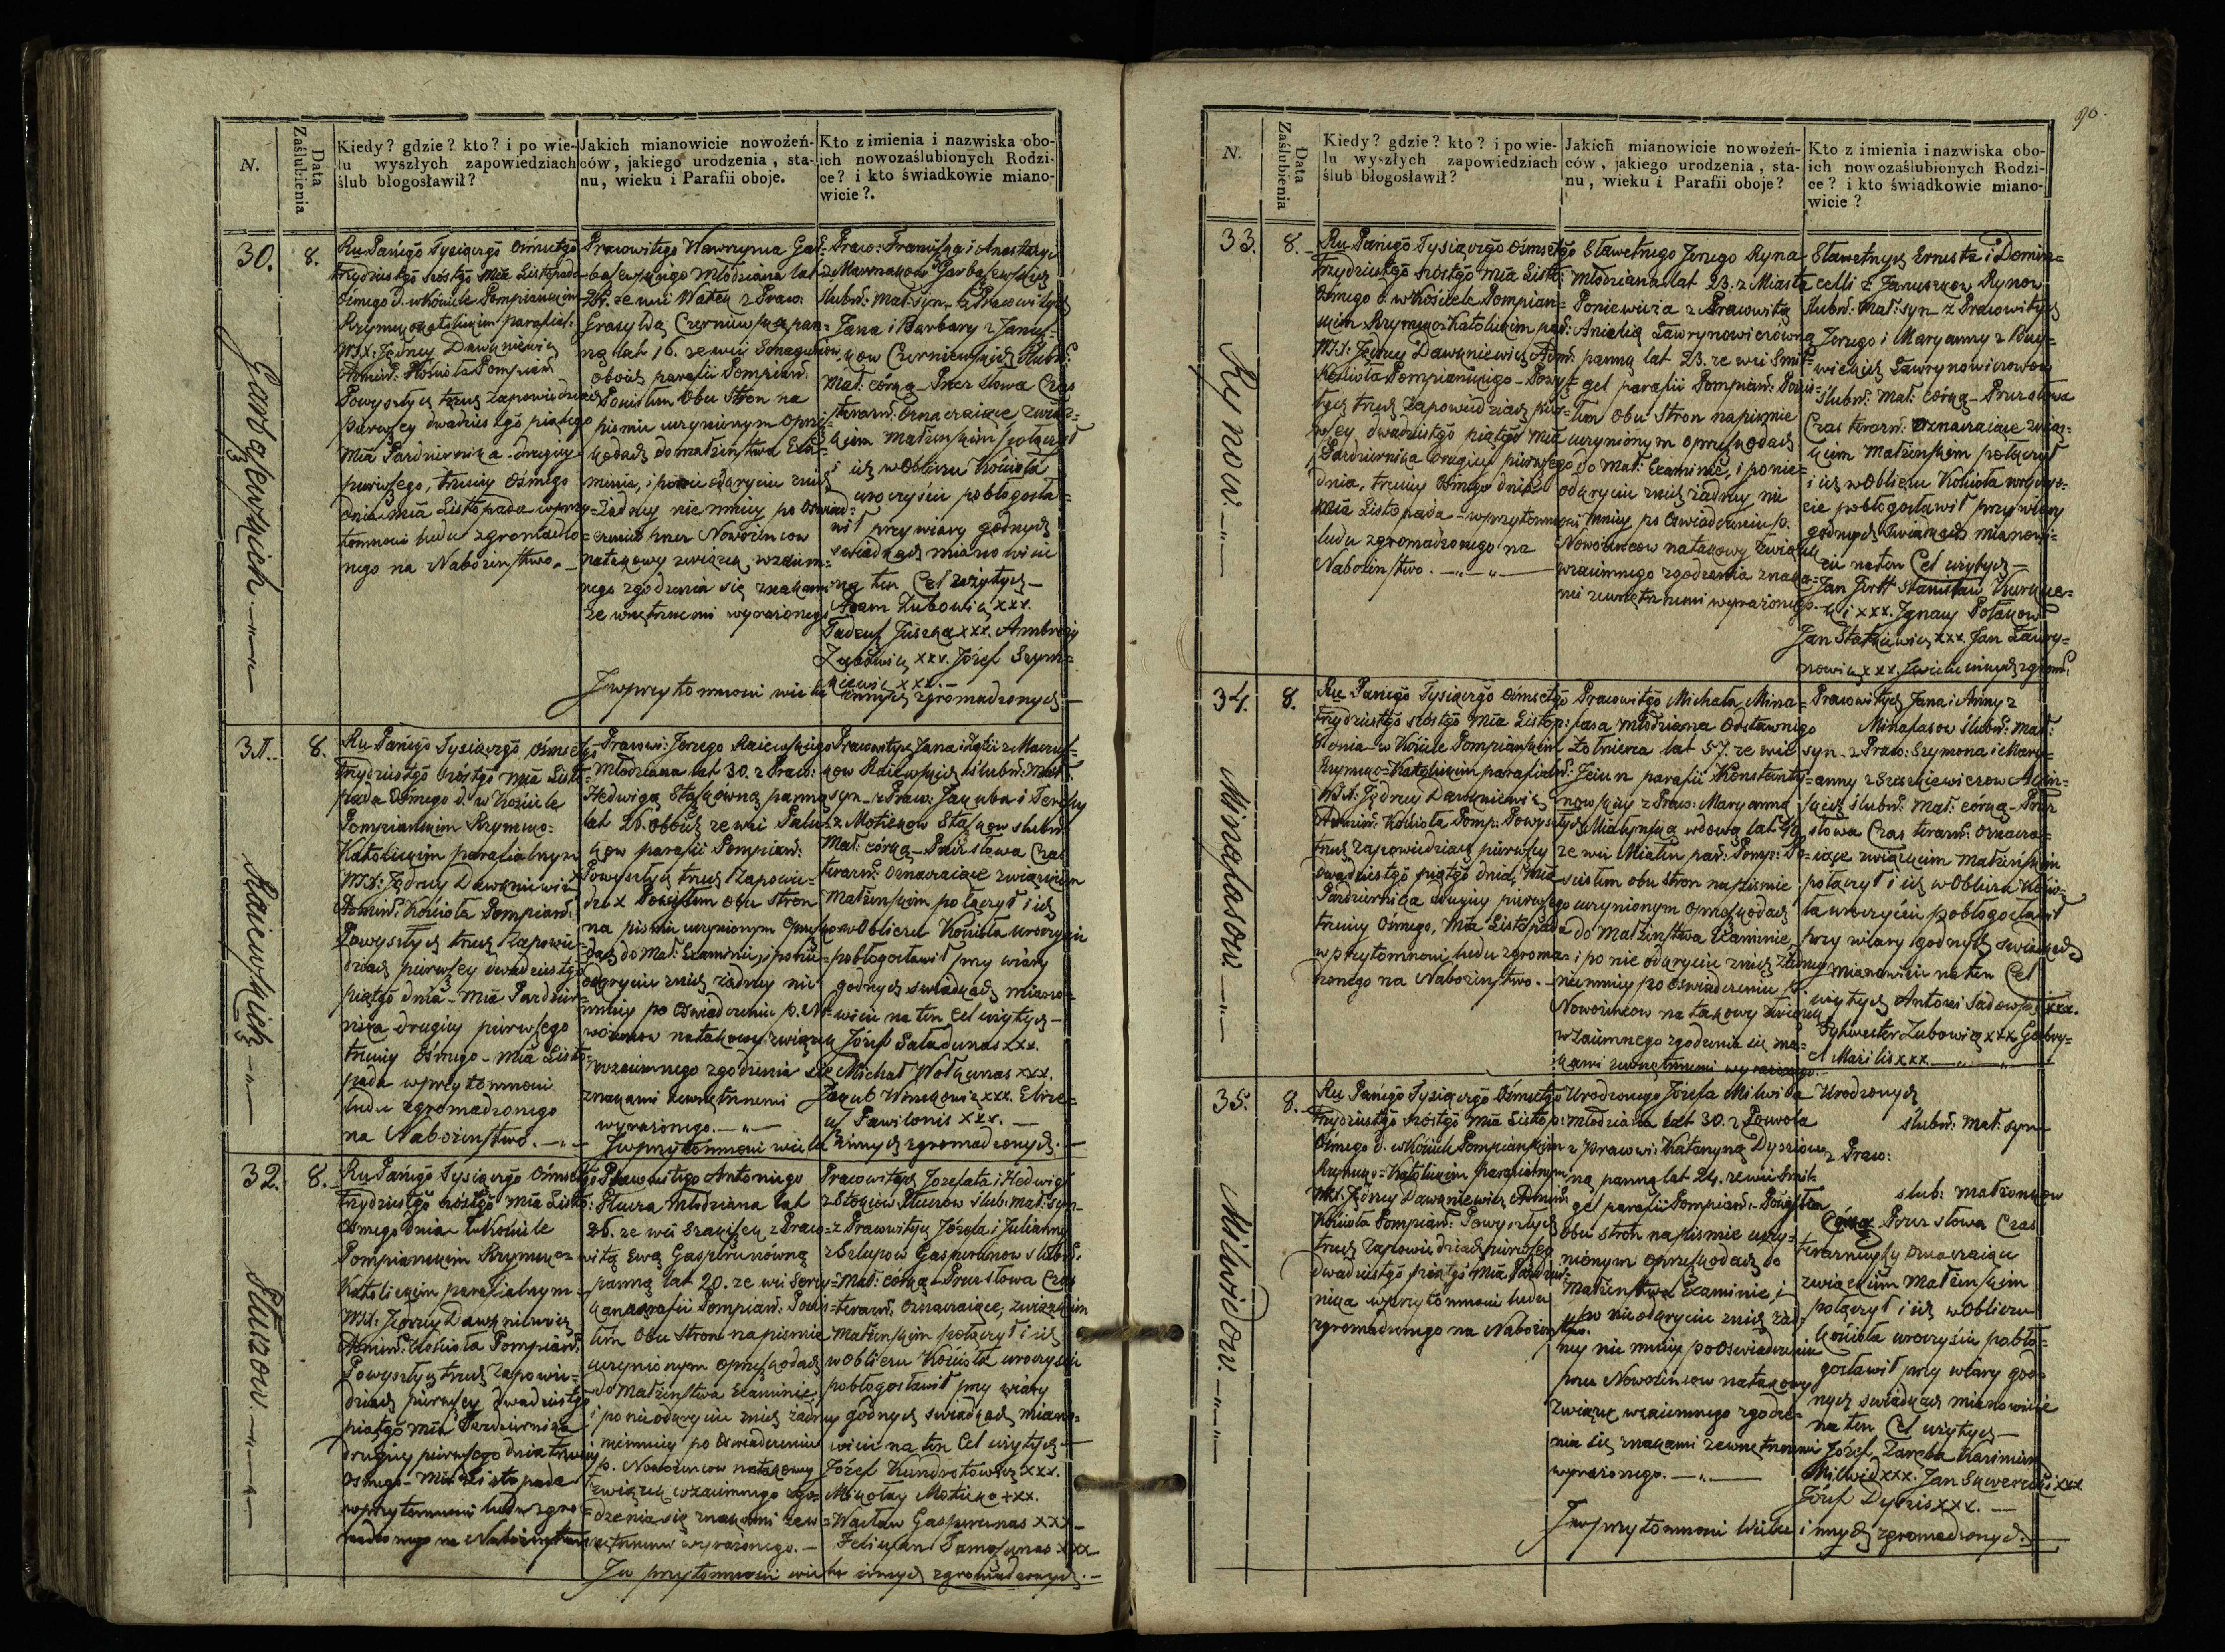 N.
Data Zaślubienia
Kiedy? gdzie? kto? i po wie-
lu wyszłych zapowiedziach
ślub błogosławił?
Jakich mianowicie nowożeń-
ców, jakiego urodzenia, sta-
nu, wieku i Parafii oboje.
Kto z imienia i nazwiska obo-
ich nowozaślubionych Rodzi-
ce? i kto świadkowie miano-
wicie?.
30.
8.
Garbaszewskich
Ru Pańsgō Tysiączgō Ośmsetgō
Trzydziestgō szóstgō Mca Listopada
Ósmego d. w Kościele Pompiańskim
Rzymskokatolickim parafial:
WJX: Jędrzey Dawkniewicz
Admin: Kościoła Pompiań:
Powyszłych trzech zapowiedziach
pierwszey dwadziestgō piątego
Mca Pazdziernika drugiey
pierwszego, trzeciey Ósmego
dnia Mca Listopada w przy-
tomności ludu zgromadzo-
nego na Nabożeństwo.
Pracowitego Wawrzyńca Gar-
baszewskiego Młodziana lat
24. ze wsi Wałek z Praw:
pan-
ną lat 16. ze wsi
oboich parafii Pompiań:
Poczułem Obu Stron na
piśmie uczynionym o prze-
szkodach do małżeństwa Exa-
minie, i po nieodkryciu z nich
żadney nie mniey po Oświad-
czeniu przez Nowożeńcow
na takowy związek wzaiem-
nego zgodzenia się znakami
zewnętrznemi wyrażonego
Praw: Franciszka i Anastazyi
z Garbaszewskich
ślubn: mał: syn z Pracowitych
Jana i Barbary z
Czerniewskich ślubn:
Mał: córką - Przez słowa Czas
teraźń: Oznaczaiące związ-
kiem Małżeńskim połączył
i ich w Obliczu Kościoła
uroczyście pobłogosła-
wił przy wiary godnych
swiadkach mianowicie
na ten Cel użytych -
Adam Zubowicz xxx.
Tadeusz Juszka xxx. Ambroży
Zubowicz xxx. Józef Szym-
kiewicz xxx. -
I w przytomności wielu innych zgromadzonych -
31.
8.
Raiewskich
Ru Pańsgō Tysiącgō Ośmsetgō
Trzydziestgō szóstgō Mca Listo-
pada Ósmego d. w Kościele
Pompiańskim Rzymsko-
Katolickim parafialnym
WJX: Jędrzey Dawkniewicz
Admin: Kościoła Pompiań:
Powyszłych trzech Zapowie-
dziach pierwszey dwadziestgō
piątgō dnia - Mca Pazdzier-
nika drugiey pierwszego
trzeciey Ósmego - Mca Listo-
pada w przytomności
ludu zgromadzonego
na Nabożeństwo.
Pracowi: Jerzego Raiewskiego
Młodziana lat 30. z Praw:
Hedwigą Staskowną panną
lat 20. Oboich ze wsi
parafii Pompiań:
Powyszłych trzech Zapowie-
Obu Stron
na piśmie uczynionym o przeszko-
dach do Mał: Examinie, i po nie-
odkryciu z nich żadney nie
mniey po Oświadczeniu p. No-
wożeńcow na takowy związek
wzaiemnego zgodzenia się
znakami zewnętrznemi
wyrażonego.
Pracowitych Jana i
Raiewskich ślubn: Mał:
syn z Praw: Jakuba i Teressy
z Motiekow Staskow slubn:
Mał: córką - Przez słowa Czas
teraźń: Oznaczaiące związkiem
Małżeńskim połączył i ich
w Obliczu Kościoła uroczyście
pobłogosławił przy wiary
godnych swiadkach miano-
wicie na ten Cel użytych -
Józef Saladunas xxx.
Michał Wołkunas xxx.
Jakub xxx.
Pawilonis xxx. -
I w przytomności wielu innych zgromadzonych -
32.
8.
Ru Pańsgō Tysiącgō Ośmsetgō
Trzydziestgō szóstgō Mca Listo:
Ósmego dnia w Kościele
Pompianskim Rzymsko-
Katolickim parafialnym
WJX: Jędrzey Dawkniewicz
Admin: Kościoła Pompiań:
Powyszłych trzech Zapowie-
dziach pierwszey dwadziestgō
piątgō Mca Pazdziernika
drugiey pierwszego dnia trzeciey
Ósmego - Mca Listopada
w przytomności ludu zgro-
madzonego na Nabożeństwo
Pracowitego Antoniego
Młodziana lat
26. ze wsi z Praco-
witą Ewą Gasperunówną
panną lat 20. ze wsi
parafii Pompiań:
Obu Stron na piśmie
uczynionym o przeszkodach
do Małżeństwa Examinie,
i po nieodkryciu z nich żadney
niemniey po Oświadczeniu
p. Nowożeńcow na takowy
związek wzaiemnego zgo-
dzenia się znakami zew-
nętrznemi wyrażonego. -
Pracowitych Jozefata i Hedwigi
ślub: mał: syn
z Pracowitych Józefa i Julianny
Gasperunow slubn:
Mał: córką - Przez słowa Czas
teraźń: Oznaczaiące, związkiem
Małżeńskim połączył i ich
w Obliczu Kościoła uroczyście
pobłogosławił przy wiary
godnych swiadkach miano-
wicie na ten Cel użytych -
Józef Kundrotowicz xxx.
Mikołay Motieka xxx.
Wacław Gasperunas xxx -
Felicyan Tamoszunas xxx
I w przytomności wielu innych zgromadzonych. -
90.
N.
Data Zaślubienia
Kiedy? gdzie? kto? i po wie-
lu wyszłych zapowiedziach
ślub błogosławił?
Jakich mianowicie nowożeń-
ców, jakiego urodzenia, sta-
nu, wieku i Parafii oboje?
Kto z imienia i nazwiska obo-
ich nowozaślubionych Rodzi-
ce? i kto świadkowie miano-
wicie?
33.
8.
Rynow
Ru Pańsgō Tysiącgō Ośmsetgō
Trzydziestgō szóstgō Mca Listo:
Ósmego d. w Kościele Pompian-
skim Rzymsko-Katolickim par:
WJX: Jędrzey Dawkniewicz Adm:
Kościoła Pompiańskiego - Powy-
szłych trzech Zapowiedziach pier-
wszey dwadziestgō piątgō Mca
Pazdziernika drugiey pierwszego
dnia, trzeciey Ósmego dnia
Mca Listopada - w przytomności
ludu zgromadzonego na
Nabożeństwo.
Sławetnego Jerzego Ryna
Młodziana lat 23. z Miasta
Poniewieża z Pracowitą
Anielią Ławrynowiczówną
panną lat 23. ze wsi Smil-
gel parafii Pompiań:
Obu Stron na piśmie
uczynionym o przeszkodach
do Mał: Examinie, i po nie-
odkryciu z nich żadney nie
mniey po Oświadczeniu p.
Nowożeńcow na takowy związek
wzaiemnego zgodzenia znaka-
mi zewnętrznemi wyrażonego.
Sławetnych Ernesta i Domin-
celli z Januszkow Rynow
ślubn: Mał: syn z Pracowitych
Jerzego i Maryanny z
Ławrynowiczow
ślubn: Mał: córką - Przez słowa
Czas teraźń: Oznaczaiące związ-
kiem Małżeńskim połączył
i ich w Obliczu Kościoła uroczyś-
cie pobłogosławił przy wiary
godnych swiadkach mianowi-
cie na ten Cel użytych -
Jan Stanisław
xxx. Ignacy
Jan Statkiewicz xxx. Jan Ławry-
nowicz xxx. I wielu innych zgrom:
34.
8.
Minałasow
Ru Pańsgō Tysiącgō Ośmsetgō
Trzydziestgō szóstgō Mca Listop:
8 dnia w Kościele Pompiańskim
Rzymsko-Katolickim parafialn:
WJX: Jędrzey Dawkniewicz
Admin: Kościoła Pomp: Powyszłych
trzech zapowiedziach pierwszey
dwadziestgō piątgō dnia, Mca
Pazdziernika drugiey pierwszego
trzeciey Ósmego, Mca Listopada
w przytomności ludu zgroma-
dzonego na Nabożeństwo. -
Pracowitgō Michała Mina-
łasa Młodziana Odstawnego
Żołnierza lat 57. ze wsi
parafii Konstanty-
nowskiey z Praw: Maryanną
wdową lat
ze wsi par: Pomp:
obu Stron na piśmie
uczynionym o przeszkodach
do Małżeństwa Examinie,
i po nie odkryciu z nich żadney
niemniey po Oświadczeniu p.
Nowożeńcow na takowy związek
wzaiemnego zgodzenia się zna-
kami zewnętrznemi wyrażonego. -
Pracowitych Jana i Anny z
Minałasow ślubn: Mał:
syn z Praw: Szymona i Mary-
anny z
ślubn: Mał: córką - Przez
słowa Czas teraźń: Oznacza-
iące związkiem Małżeńskim
połączył i ich w Obliczu Kościo-
ła uroczyście pobłogosławił
przy wiary godnych swiadkach
mianowicie na ten Cel
użytych Antoni Sadowski xxx.
Sylwester Zubowicz xxx Gabry-
el xxx
35.
8.
Milwidow
Ru Pańsgō Tysiącgō Ośmsetgō
Trzydziestgō szóstgō Mca Listop:
Ósmego d. w Kościele Pompiańskim
Rzymsko-Katolickim parafialnym
WJX: Jędrzey Dawkniewicz Admin:
Kościoła Pompiań: Powyszłych
trzech Zapowiedziach pierwszey
dwadziestgō piątgō Mca Pazdzier-
nika w przytomności ludu
zgromadzonego na Nabożeństwo.
Urodzonego Józefa Milwida
Młodziana lat 30. z
z Pracowi: Katarzyną
panną lat 24. ze wsi Smil-
gel parafii Pompiań: -
obu stron na piśmie uczy-
nionym o przeszkodach do
Małżeństwa Examinie, i
po nieodkryciu z nich żad-
ney nie mniey po Oświadczeniu
przez Nowożeńcow na takowy
związek wzaiemnego zgodze-
nia się znakami zewnętrznemi
wyrażonego.
Urodzonych
ślubn: Mał: syn
z Praw:
slub: małżonkow
Córką Przez słowa Czas
teraźnieyszy oznaczaiące
związkiem Małżeńskim
połączył i ich w Obliczu
Kościoła uroczyście pobło-
gosławił przy wiary god-
nych swiadkach mianowicie
na ten Cel użytych -
Józef Zaręba Kazimierz
Milwid xxx. Jan xxx
Józef xxx. -
I w przytomności Wielu innych zgromadzonych. -